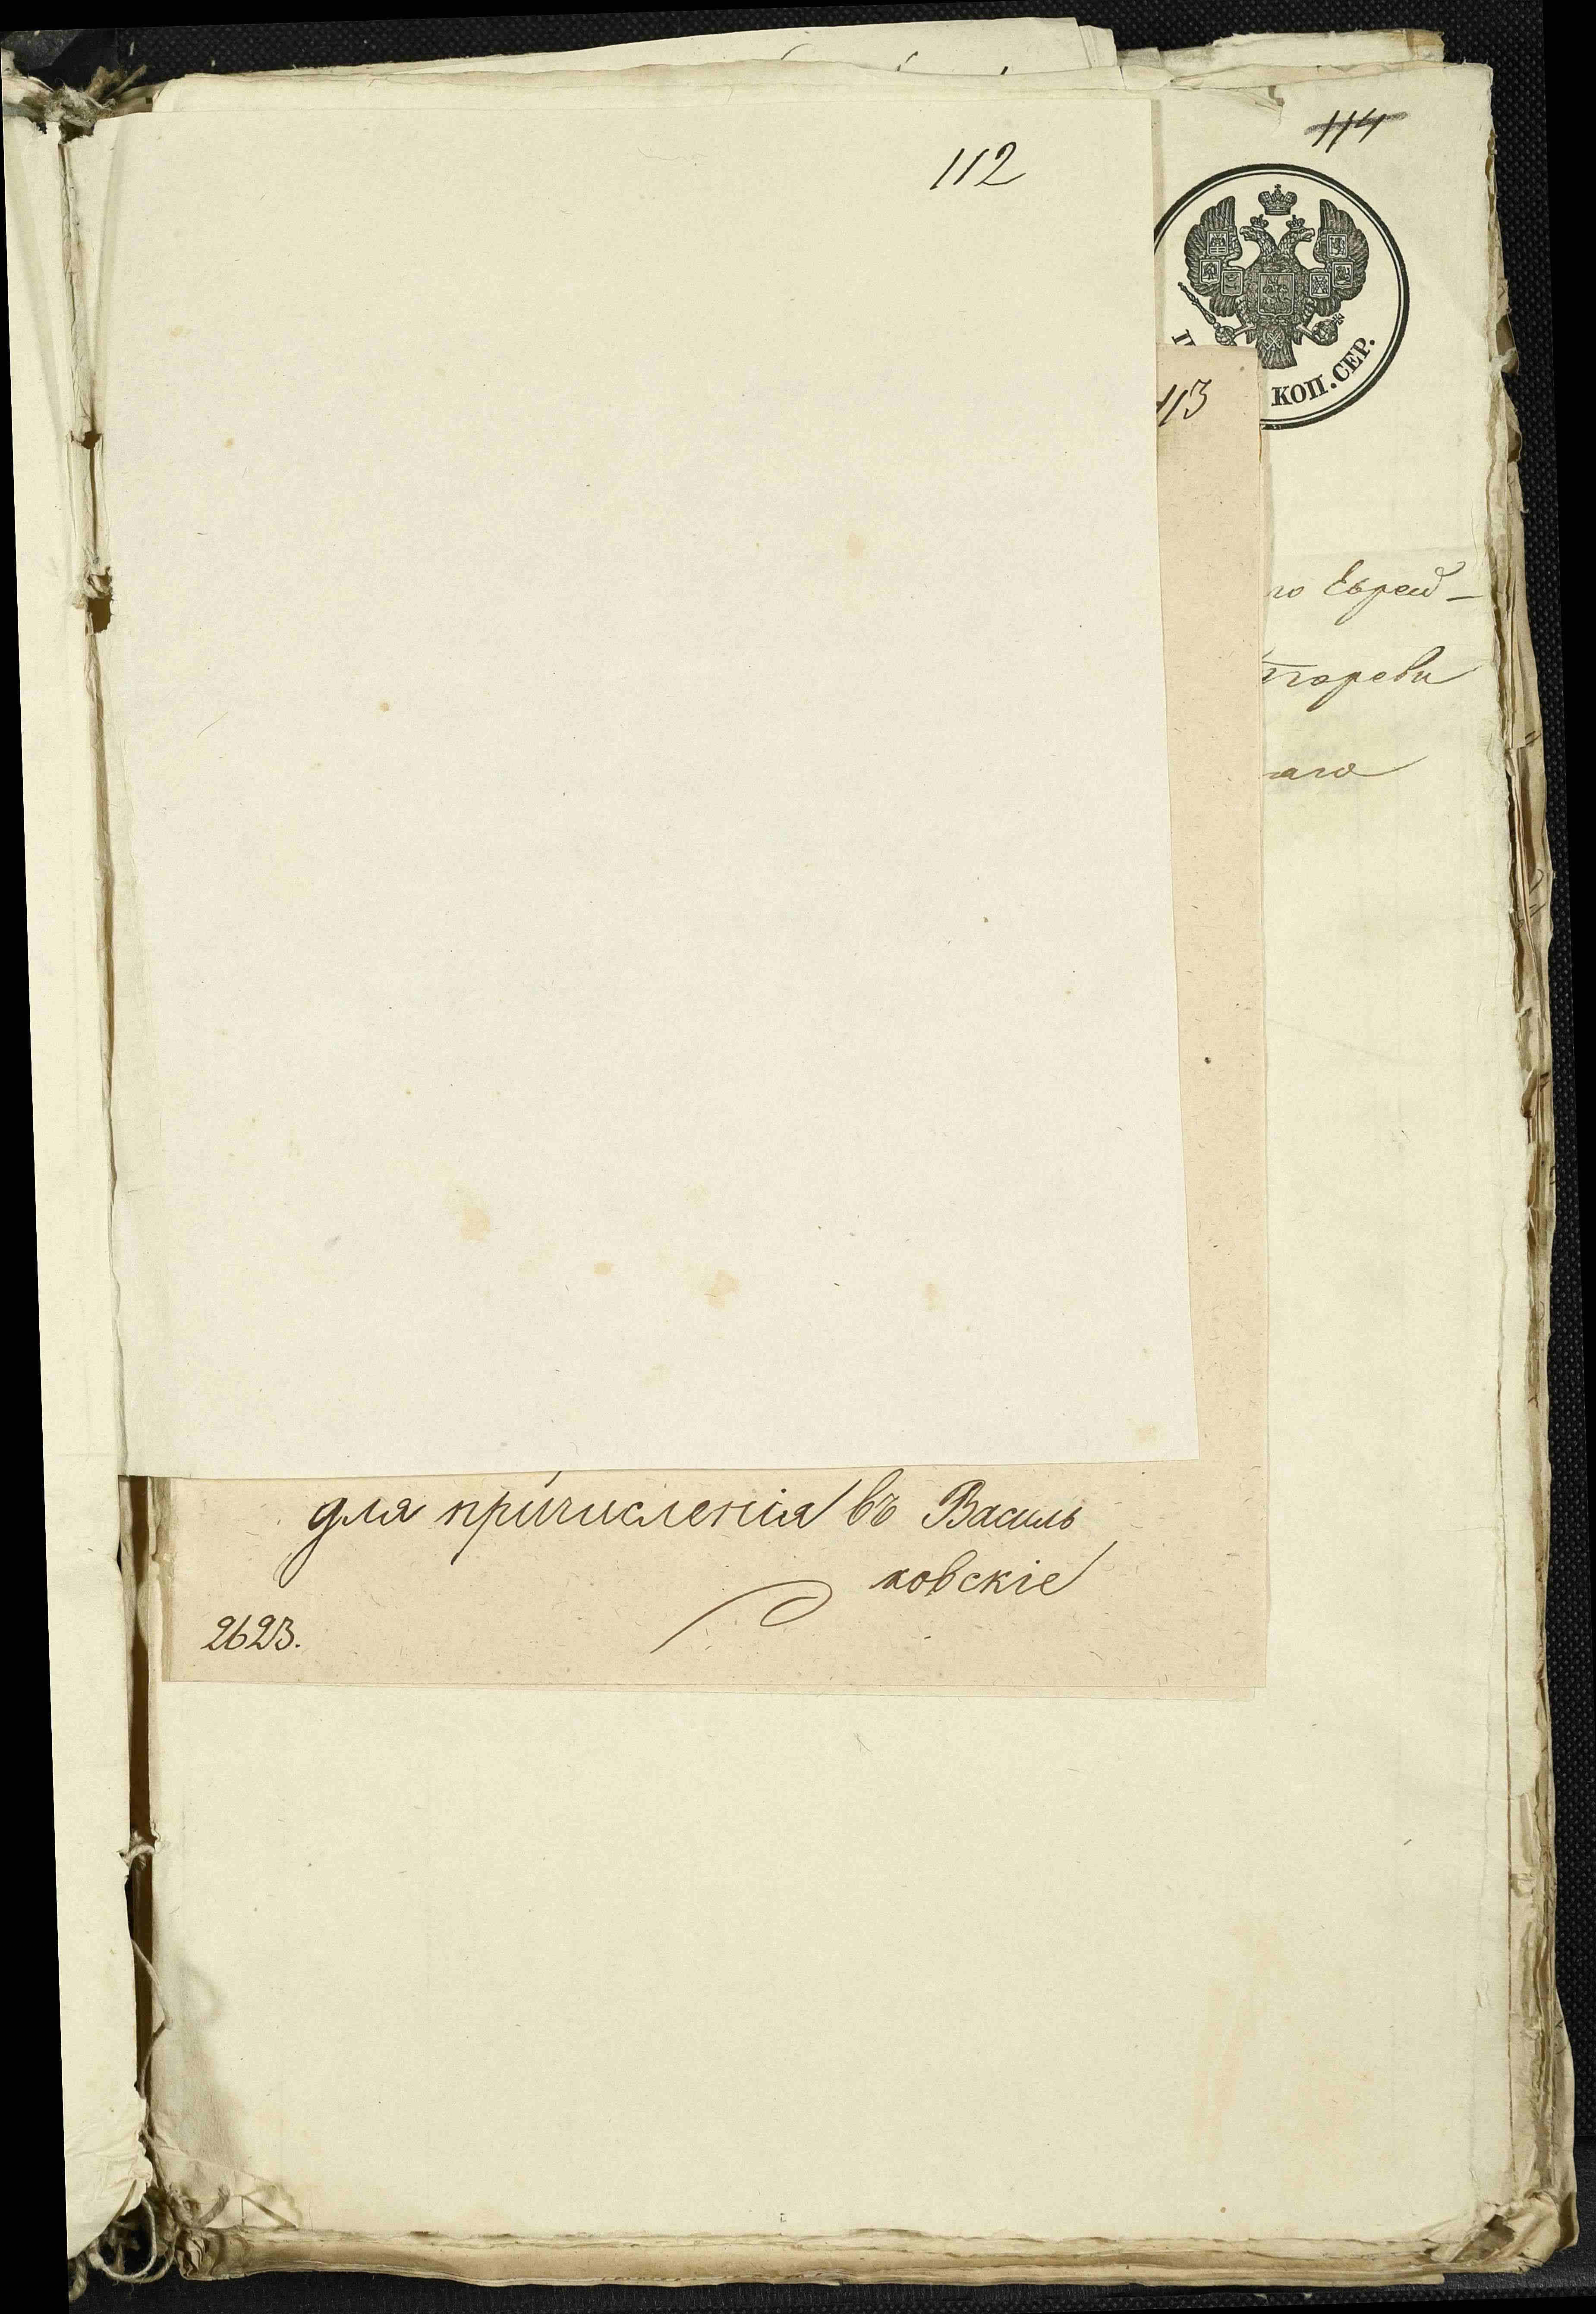 114
112
КОП. СЕР.
113
го Еврей-
аго
для причисленія въ Василь
ковскіе
2623.